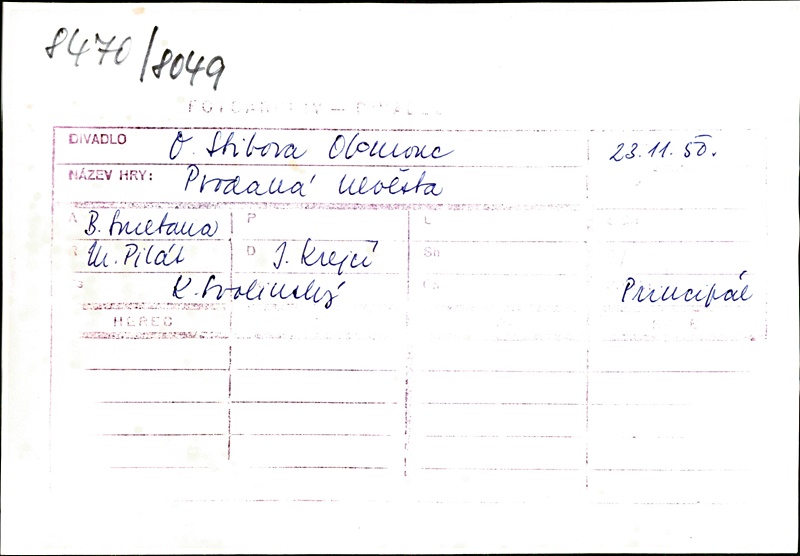 8470/8049
DIVADLO O. Stibora Olomouc 23.11.50.
NÁZEV HRY: Prodaná nevěsta
A B. Smetana P L
M. Pilát D J. Krejčí Sh
K. Svolinský Principál
HEREC